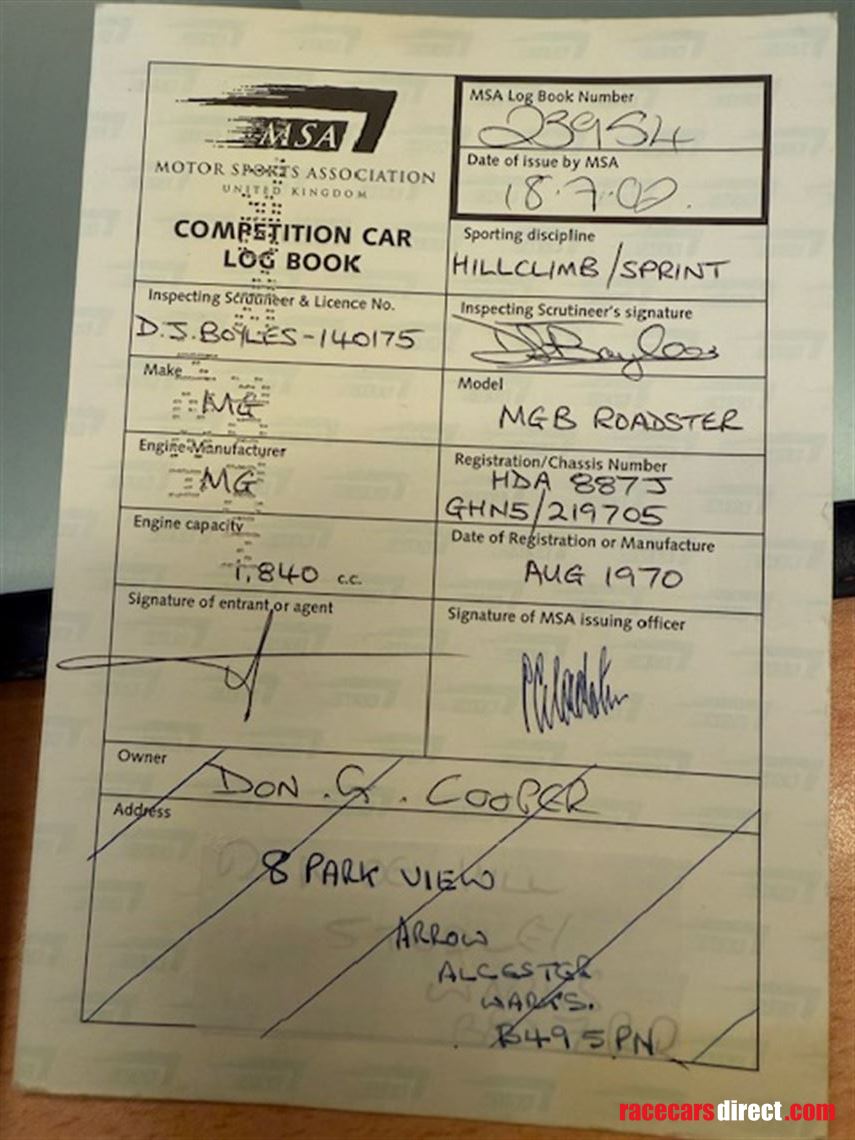 MSA
MOTOR SPORTS ASSOCIATION
UNITED KINGDOM
COMPETITION CAR
LOG BOOK
MSA Log Book Number
23954
Date of issue by MSA
18.7.02.
Sporting discipline
HILLCLIMB/SPRINT
Inspecting Scrutineer & Licence No.
D.J.BOYLES-140175
Inspecting Scrutineer's signature
Make
MG
Model
MGB ROADSTER
Engine Manufacturer
MG
Registration/Chassis Number
HDA 887J
GHN5/219705
Engine capacity
1,840 c.c.
Date of Registration or Manufacture
AUG 1970
Signature of entrant or agent
Signature of MSA issuing officer
Owner
DON.G.COOPER
Address
8 PARK VIEW
ARROW
ALCESTER
WARKS.
B49 5PN
racecarsdirect.com